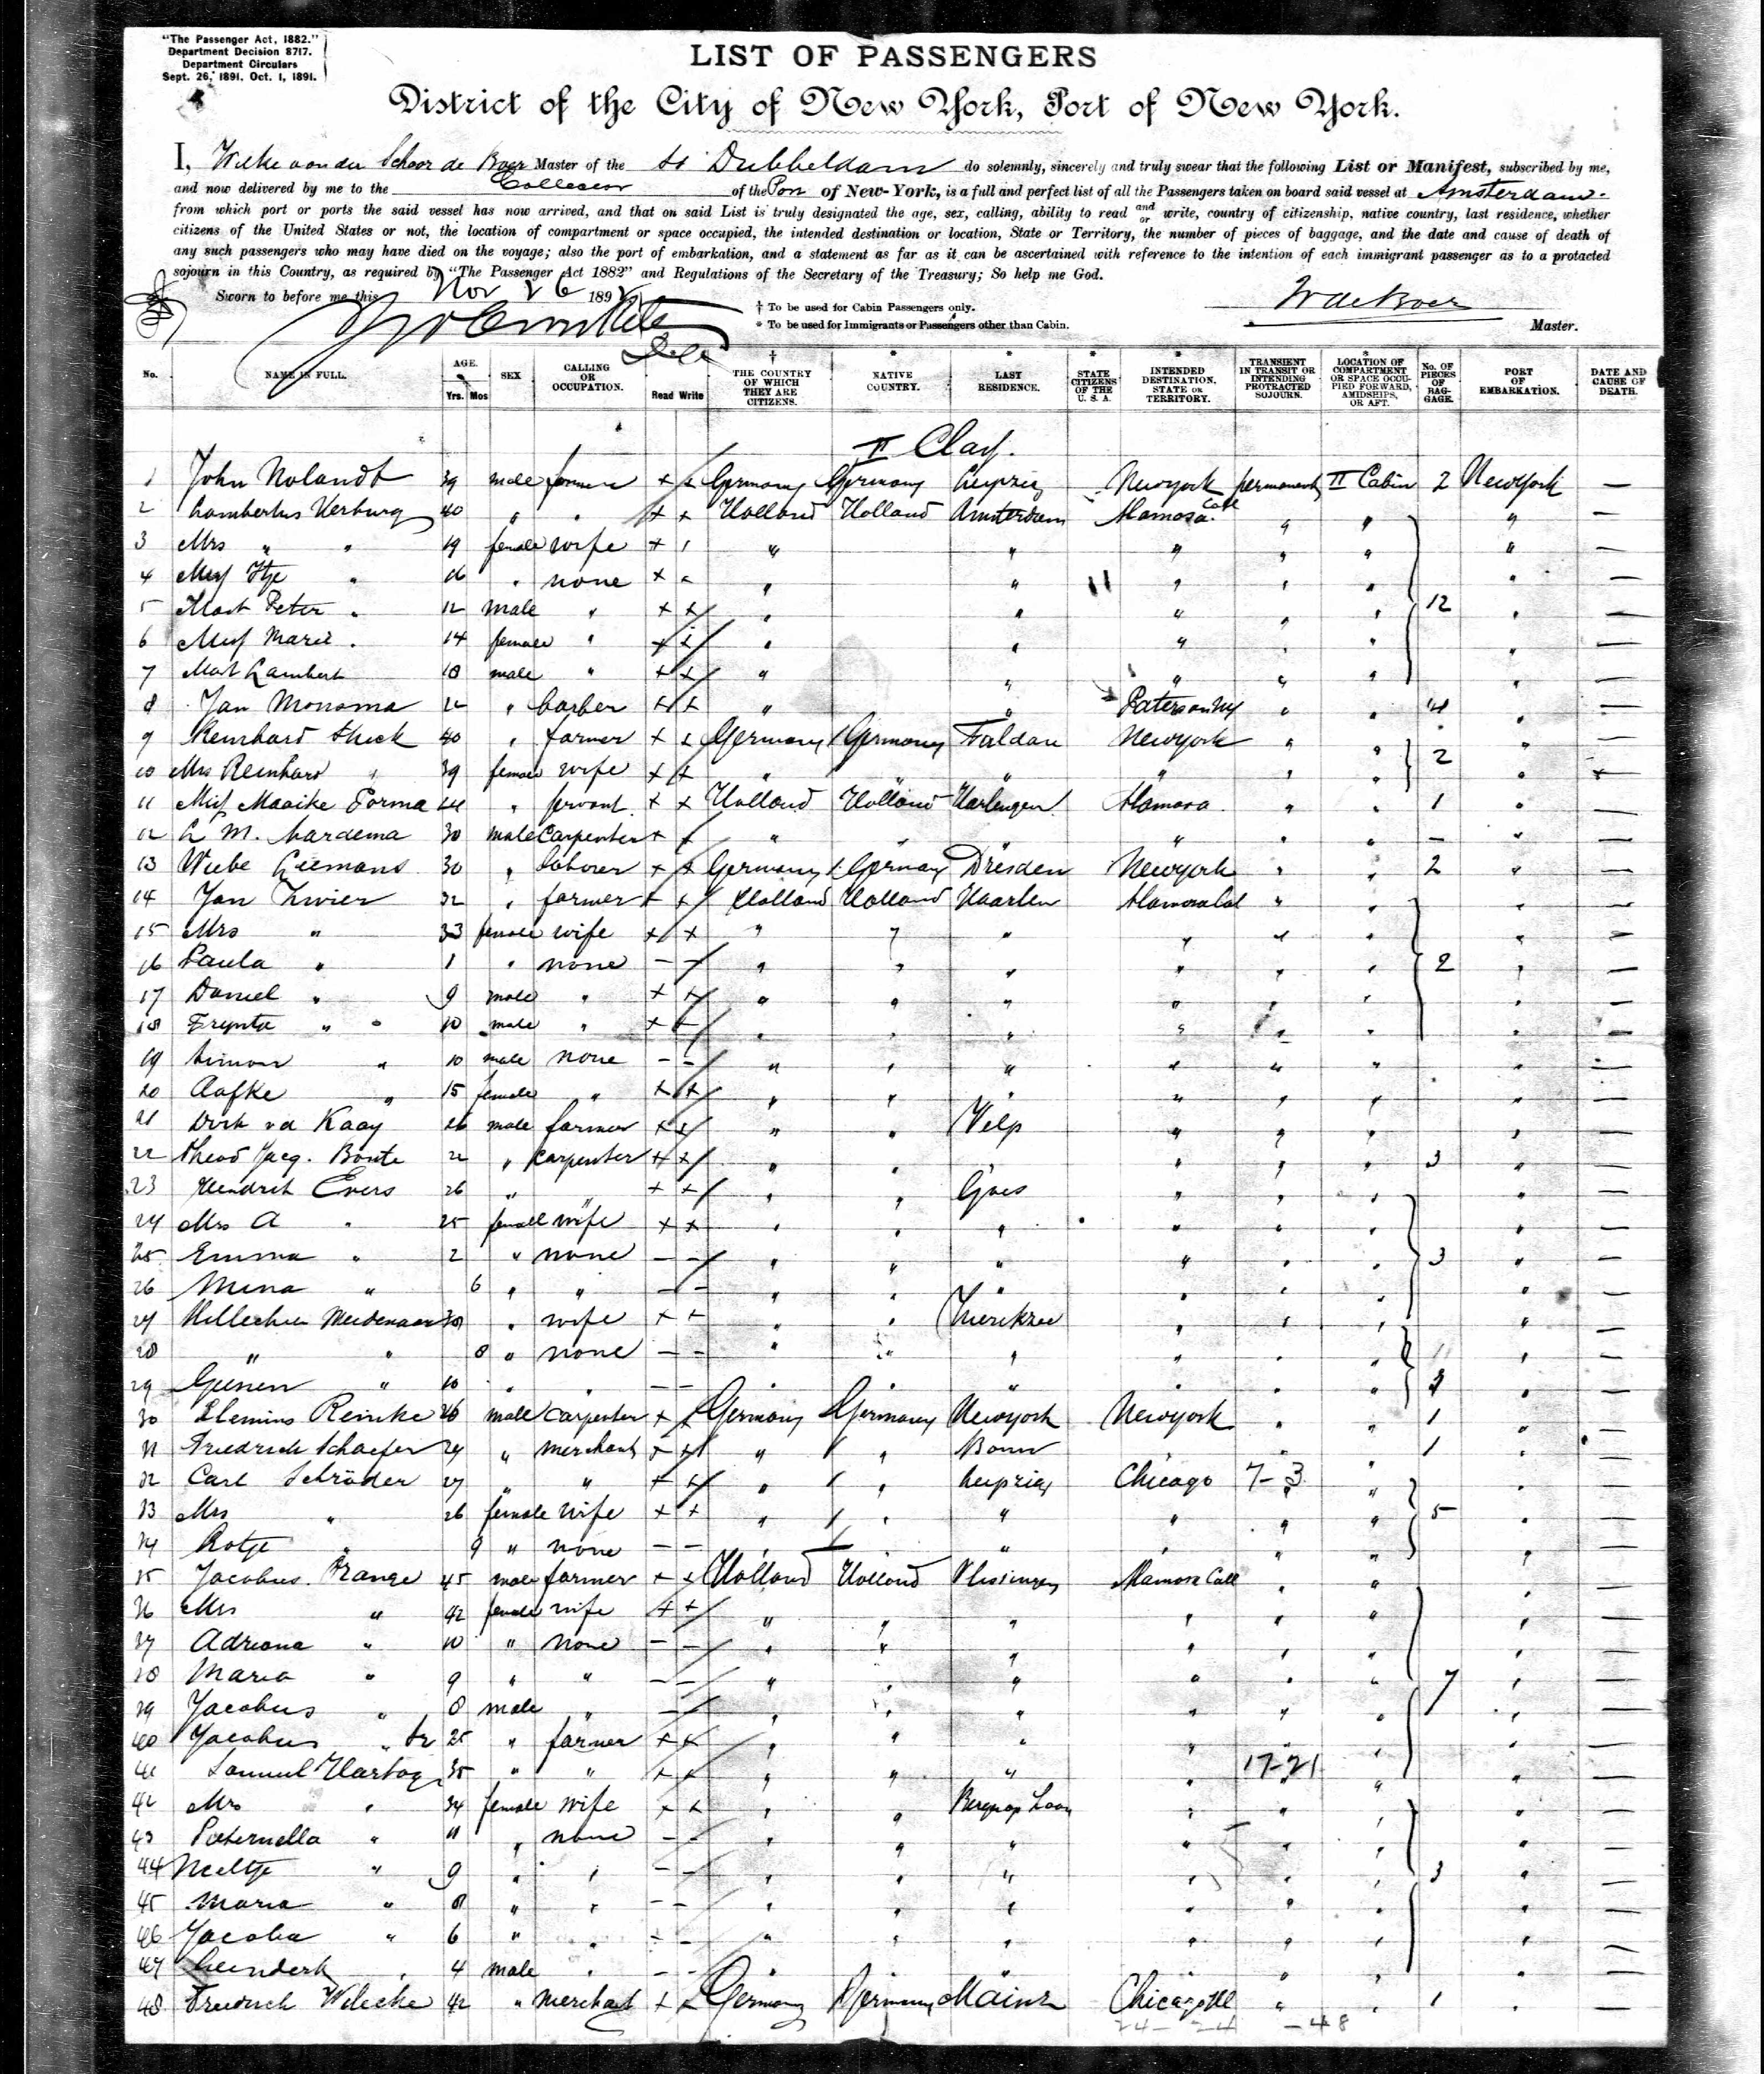 "The Passenger Act, 1882."
Department Decision 8717.
Department Circulars
Sept. 26, 1891. Oct. 1, 1891.
LIST OF PASSENGERS
District of the City of New York, Port of New York.
I, de Boer Master of the ss Dubbeldam do solemnly, sincerely and truly swear that the following List or Manifest, subscribed by me,
and now delivered by me to the Collector of the Port of New-York, is a full and perfect list of all the Passengers taken on board said vessel at Amsterdam.
from which port or ports the said vessel has now arrived, and that on said List is truly designated the age, sex, calling, ability to read and or write, country of citizenship, native country, last residence, whether
citizens of the United States or not, the location of compartment or space occupied, the intended destination or location, State or Territory, the number of pieces of baggage, and the date and cause of death of
any such passengers who may have died on the voyage; also the port of embarkation, and a statement as far as it can be ascertained with reference to the intention of each immigrant passenger as to a protacted
sojourn in this Country, as required by "The Passenger Act 1882" and Regulations of the Secretary of the Treasury; So help me God.
Sworn to before me this Nov 26 1892
† To be used for Cabin Passengers only.
* To be used for Immigrants or Passengers other than Cabin.
W de Boer Master.
No. NAME IN FULL. AGE. Yrs. Mos SEX CALLING OR OCCUPATION. Read Write † THE COUNTRY OF WHICH THEY ARE CITIZENS. * NATIVE COUNTRY. * LAST RESIDENCE. * STATE CITIZENS OF THE U. S. A. * INTENDED DESTINATION, STATE OR TERRITORY. TRANSIENT IN TRANSIT OR INTENDING PROTRACTED SOJOURN. * LOCATION OF COMPARTMENT OR SPACE OCCUPIED FORWARD, AMIDSHIPS, OR AFT. No. OF PIECES OF BAGGAGE. PORT OF EMBARKATION. DATE AND CAUSE OF DEATH.
II Class.
1 John Nolandt 39 male farmer + + Germany Germany Leipzig Newyork permanent II Cabin 2 NewYork —
2 Lambertus Verburg 40 " " + + Holland Holland Amsterdam Alamosa Col " " " —
3 Mrs " " 19 female wife + " " " " " " —
4 Miss Itje " 16 " none + " " 11 " " " " —
5 Mast Peter " 12 male " + + " " " " " 12 " —
6 Miss Marie " 14 female " + + " " " " " " —
7 Mast Lambert 10 male " + + " " " " " —
8 Jan Monsma 22 " barber + + " " Paterson NY " " 4 " —
9 Reinhard 40 " farmer + + Germany Germany Newyork " " 2 " —
10 Mrs Reinhard " 39 female wife + + " " " " " " "
11 Miss Maaike 24 " servant + + Holland Holland Harlingen Alamosa " " 1 " —
12 M. 30 male carpenter + + " " " " " " — " —
13 Wiebe 30 " laborer + + Germany Germany Dresden Newyork " " 2 " —
14 Jan Zwier 32 " farmer + + Holland Holland Haarlem Alamosa Col " " " —
15 Mrs " 33 female wife + + " " " " " " " —
16 Paula " 1 " none — — " " " " " " 2 " —
17 Daniel " 9 male " + + " " " " " " " —
18 " 10 male " + + " " " " " " " —
19 Simon " 10 male none — — " " " " " " " —
20 Aafke " 15 female " + + " " " " " " " —
21 Dirk vd Kaay 26 male farmer + + " " Velp " " " " —
22 Theod Jacq. Bonte 22 " carpenter + + " " " " " 3 " —
23 Hendrik Evers 26 " " + + " " Goes " " " " —
24 Mrs A " 25 female wife + + " " " " " " " —
25 Emma " 2 " none — — " " " " " " 3 " —
26 Mina " 6 " " — — " " " " " " " —
27 30 " wife + + " " Zierikzee " " " " —
28 " " 8 " none — — " " " " " " " —
29 " 10 " " — — " " " " " " " —
30 Reinke 26 male carpenter + + Germany Germany Newyork Newyork " " 1 " —
31 Friedrich Schaefer 29 " merchant + + " " Bonn " " 1 " —
32 Carl Schröder 27 " " + + " " Leipzig Chicago 7-3 " " —
33 Mrs " 26 female wife + + " " " " " " 5 " —
34 " 9 " none — — " " " " " " " —
35 Jacobus Prange 45 male farmer + + Holland Holland Vlissingen Alamosa Coll " " " —
36 Mrs " 42 female wife + + " " " " " " " —
37 Adriana " 10 " none — — " " " " " " " —
38 Maria " 9 " " — — " " " " " " 7 " —
39 Jacobus " 8 male " — — " " " " " " " —
40 Jacobus " Sr 25 " farmer + + " " " " " " " —
41 Samuel Hartog 35 " " + + " " " " 17-21 " " —
42 Mrs " 34 female wife + + " " Bergenop Zoom " " " " —
43 Peternella " 11 " none — — " " " " " " " —
44 Neeltje " 9 " " — — " " " " " " 3 " —
45 Maria " 8 " " — — " " " " " " " —
46 Jacoba " 6 " " — — " " " " " " " —
47 Leenderk " 4 male " — — " " " " " " " —
48 Friedrich 42 " merchant + + Germany Germany Mainz Chicago Ill " " 1 " —
24- 24 -48